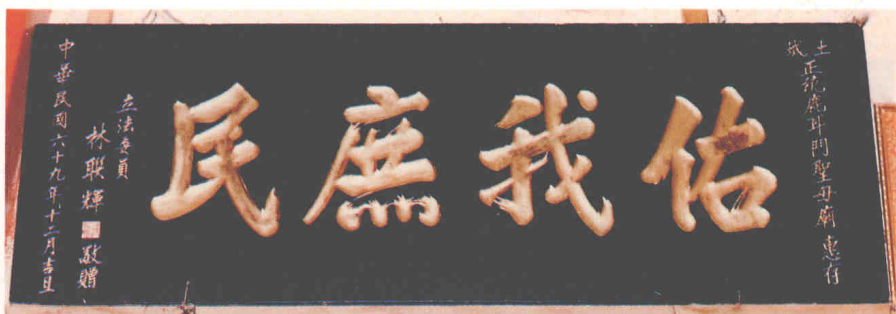 土城正統鹿耳門聖母廟 惠存
佑我庶民
立法委員
林聯輝 敬贈
中華民國六十九年十二月吉旦